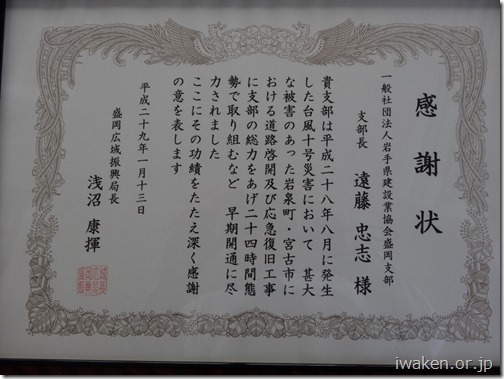 感謝状
一般社団法人岩手県建設業協会盛岡支部
支部長 遠藤 忠志 様
貴支部は平成二十八年八月に発生
した台風十号災害において 甚大
な被害のあった岩泉町・宮古市に
おける道路啓開及び応急復旧工事
に支部の総力をあげ二十四時間態
勢で取り組むなど 早期開通に尽
力されました
ここにその功績をたたえ深く感謝
の意を表します
平成二十九年一月十三日
盛岡広域振興局長
浅沼 康揮
iwaken.or.jp